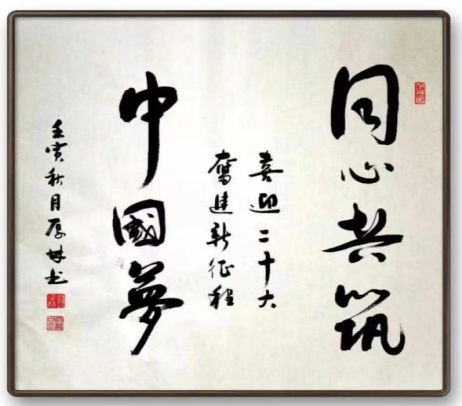 同心共筑
喜迎二十大
奮進新征程
中國夢
壬寅秋月厚林书